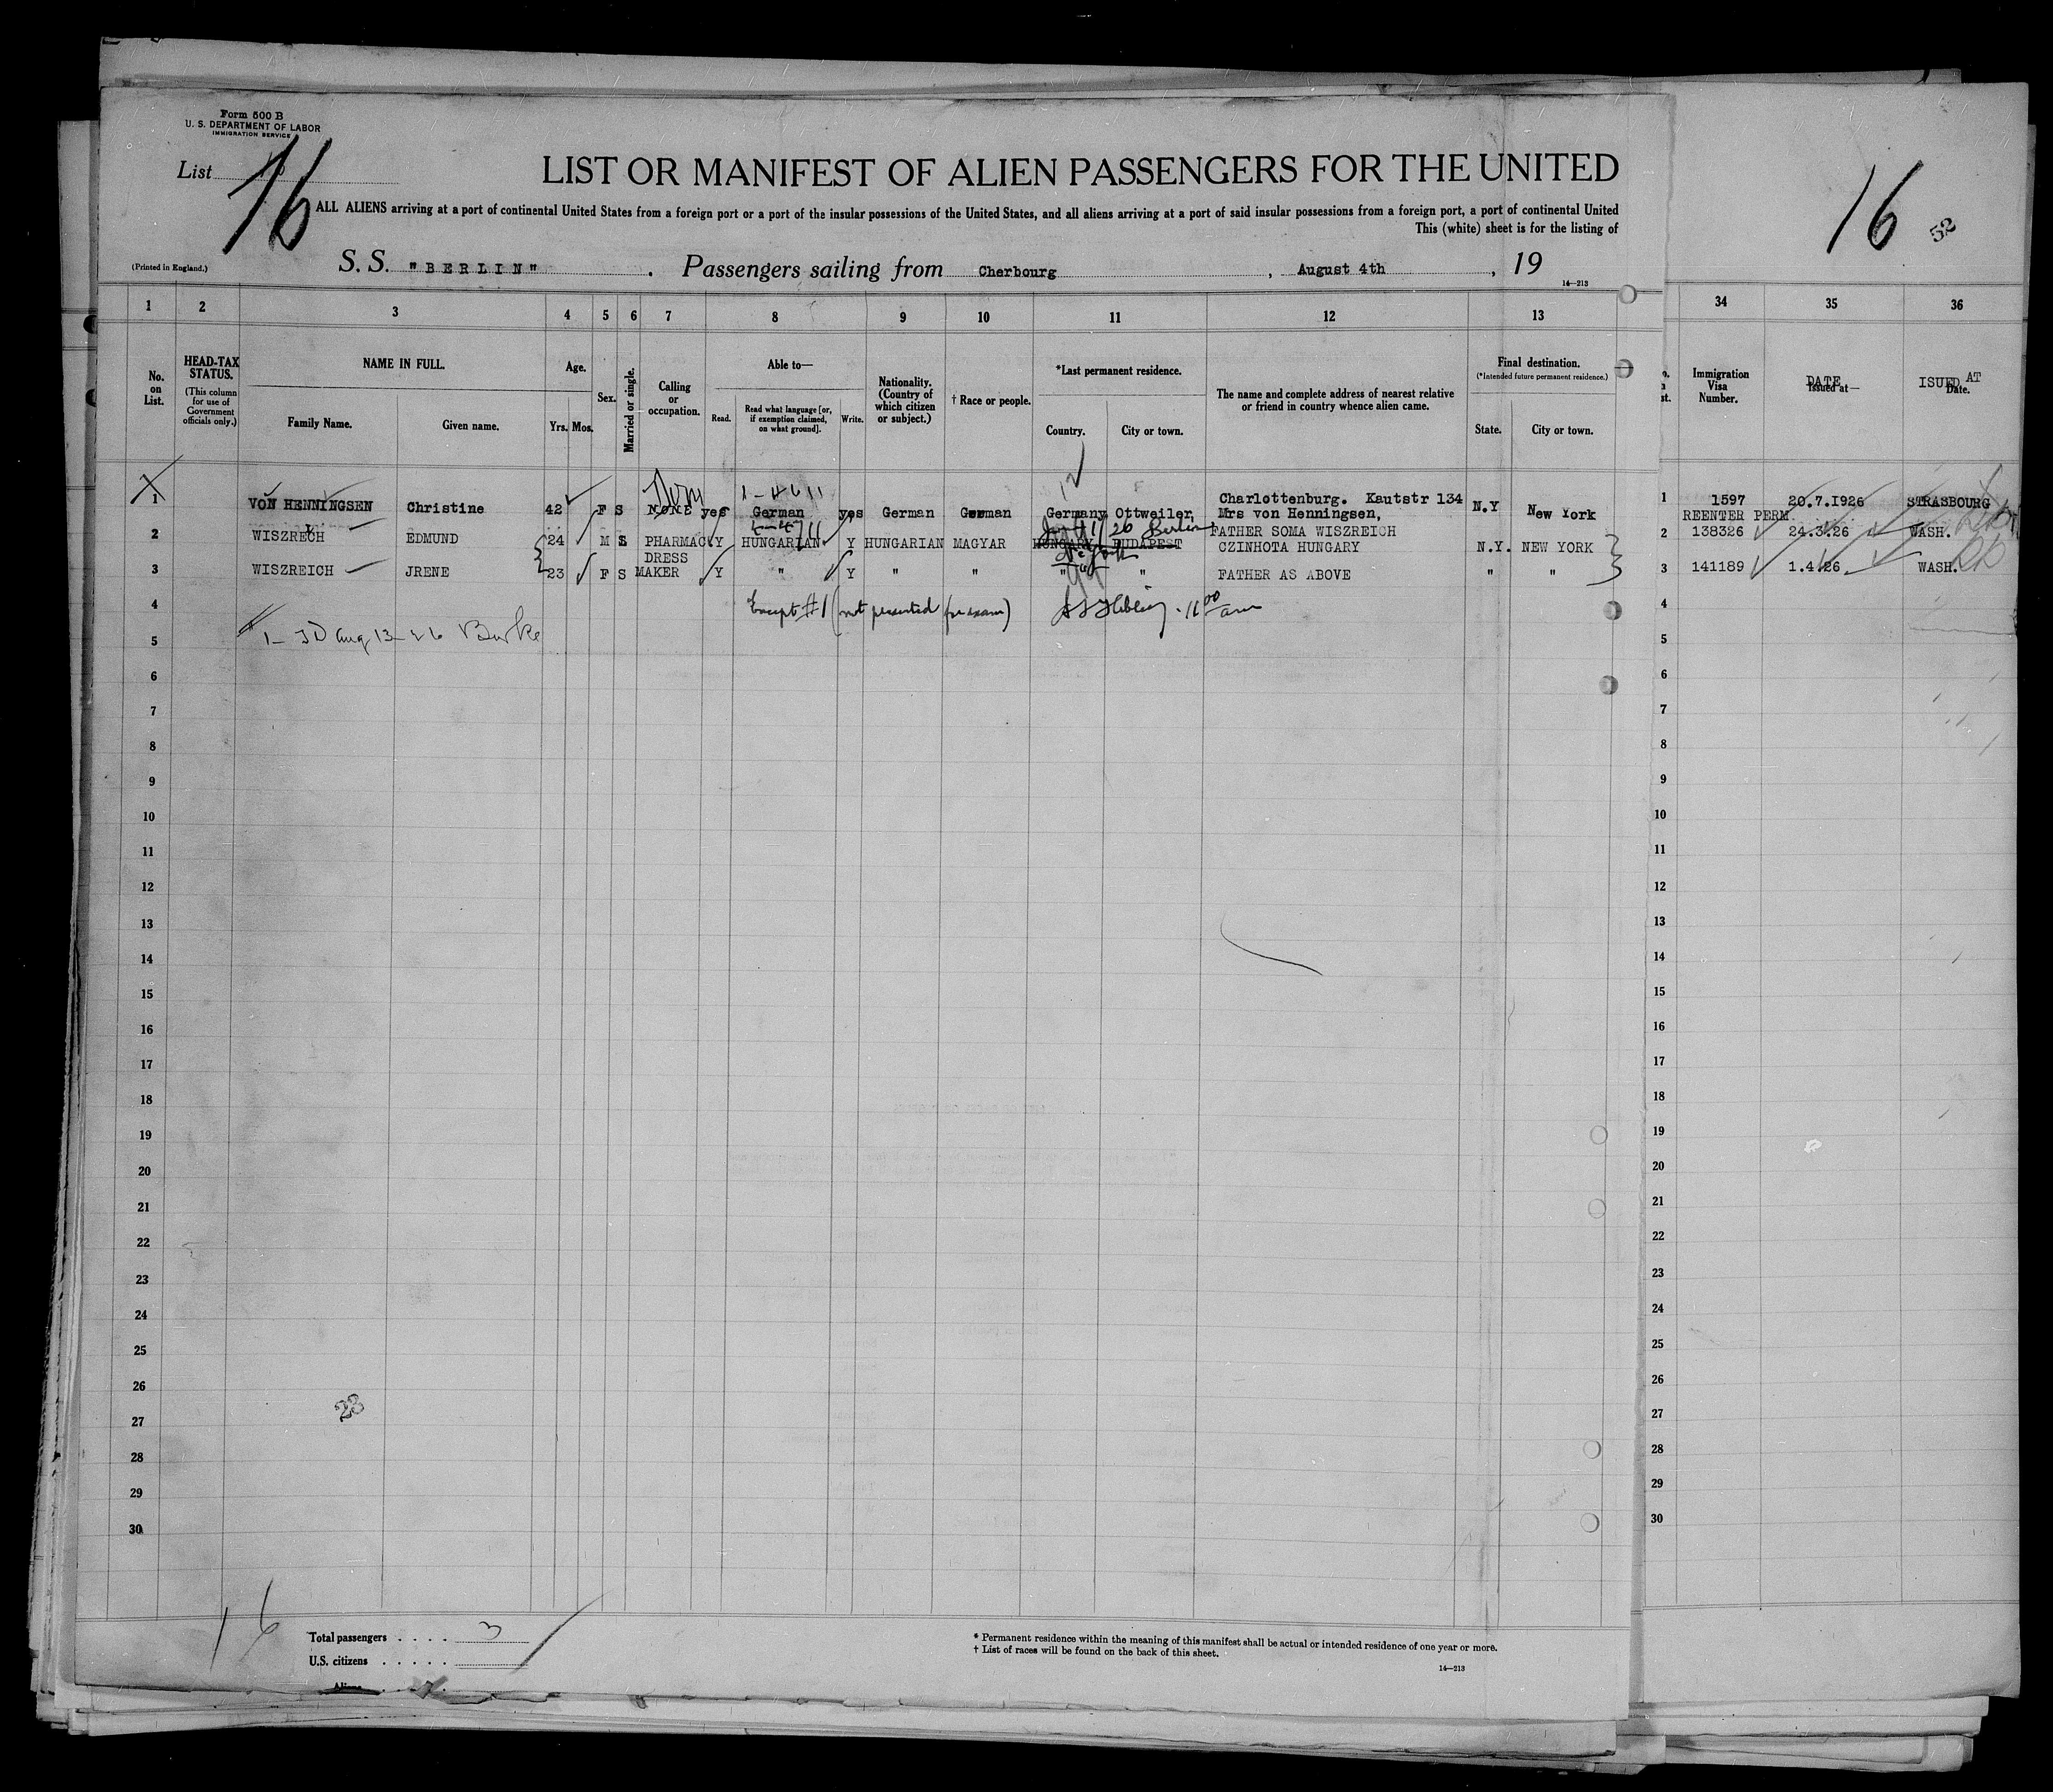 Form 500 B
U. S. DEPARTMENT OF LABOR
IMMIGRATION SERVICE
List 16
LIST OR MANIFEST OF ALIEN PASSENGERS FOR THE UNITED
16
52
ALL ALIENS arriving at a port of continental United States from a foreign port or a port of the insular possessions of the United States, and all aliens arriving at a port of said insular possessions from a foreign port, a port of continental United
This (white) sheet is for the listing of
(Printed in England.)
S. S. "BERLIN" . Passengers sailing from Cherbourg , August 4th , 19
14—213
1 2 3 4 5 6 7 8 9 10 11 12 13 34 35 36
No. on List.
HEAD-TAX STATUS.
(This column for use of Government officials only.)
NAME IN FULL.
Family Name. Given name.
Age.
Yrs. Mos.
Sex.
Married or single.
Calling or occupation.
Able to—
Read. Read what language [or, if exemption claimed, on what ground]. Write.
Nationality. (Country of which citizen or subject.)
† Race or people.
*Last permanent residence.
Country. City or town.
The name and complete address of nearest relative or friend in country whence alien came.
Final destination.
(*Intended future permanent residence.)
State. City or town.
Immigration Visa Number.
DATE
Issued at—
ISUED AT
Date.
Charlottenburg. Kautstr 134
1 VON HENNINGSEN Christine 42 F S NONE yes German yes German German Germany Ottweiler, Mrs von Henningsen, N.Y New York 1 1597 20.7.1926 STRASBOURG
REENTER PERM.
2 WISZRECH EDMUND 24 M S PHARMAC Y HUNGARIAN Y HUNGARIAN MAGYAR HUNGARY BUDAPEST FATHER SOMA WISZREICH
CZINHOTA HUNGARY N.Y. NEW YORK 2 138326 24.3.26 WASH.
Berlin
DRESS
3 WISZREICH JRENE 23 F S MAKER Y " Y " " " " FATHER AS ABOVE " " 3 141189 1.4.26 WASH.
4 Except #1 (not presented for exam) 11 00 am 4
5 1- Aug 13-26 Burke 5
6 6
7 7
8 8
9 9
10 10
11 11
12 12
13 13
14 14
15 15
16 16
17 17
18 18
19 19
20 20
21 21
22 22
23 23
24 24
25 25
26 26
23
27 27
28 28
29 29
30 30
16
Total passengers . . . . 3
U.S. citizens . . . . .
Aliens
* Permanent residence within the meaning of this manifest shall be actual or intended residence of one year or more.
† List of races will be found on the back of this sheet.
14—213